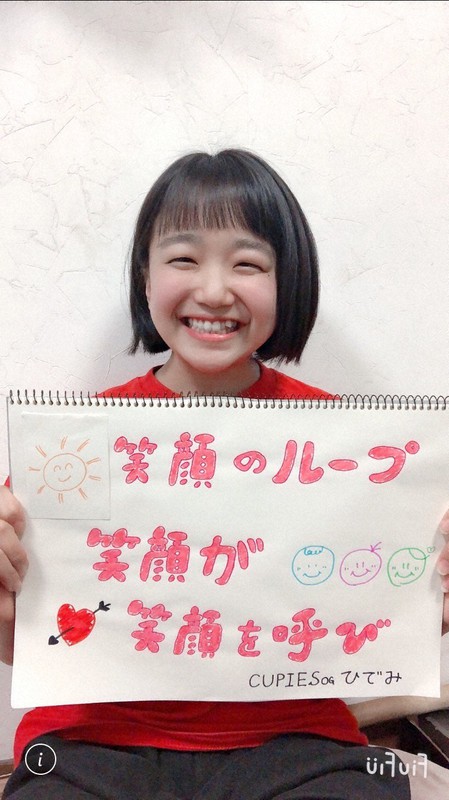 笑顔のループ
笑顔が
笑顔を呼び
CUPIES OG ひでみ
i
FiuFiu